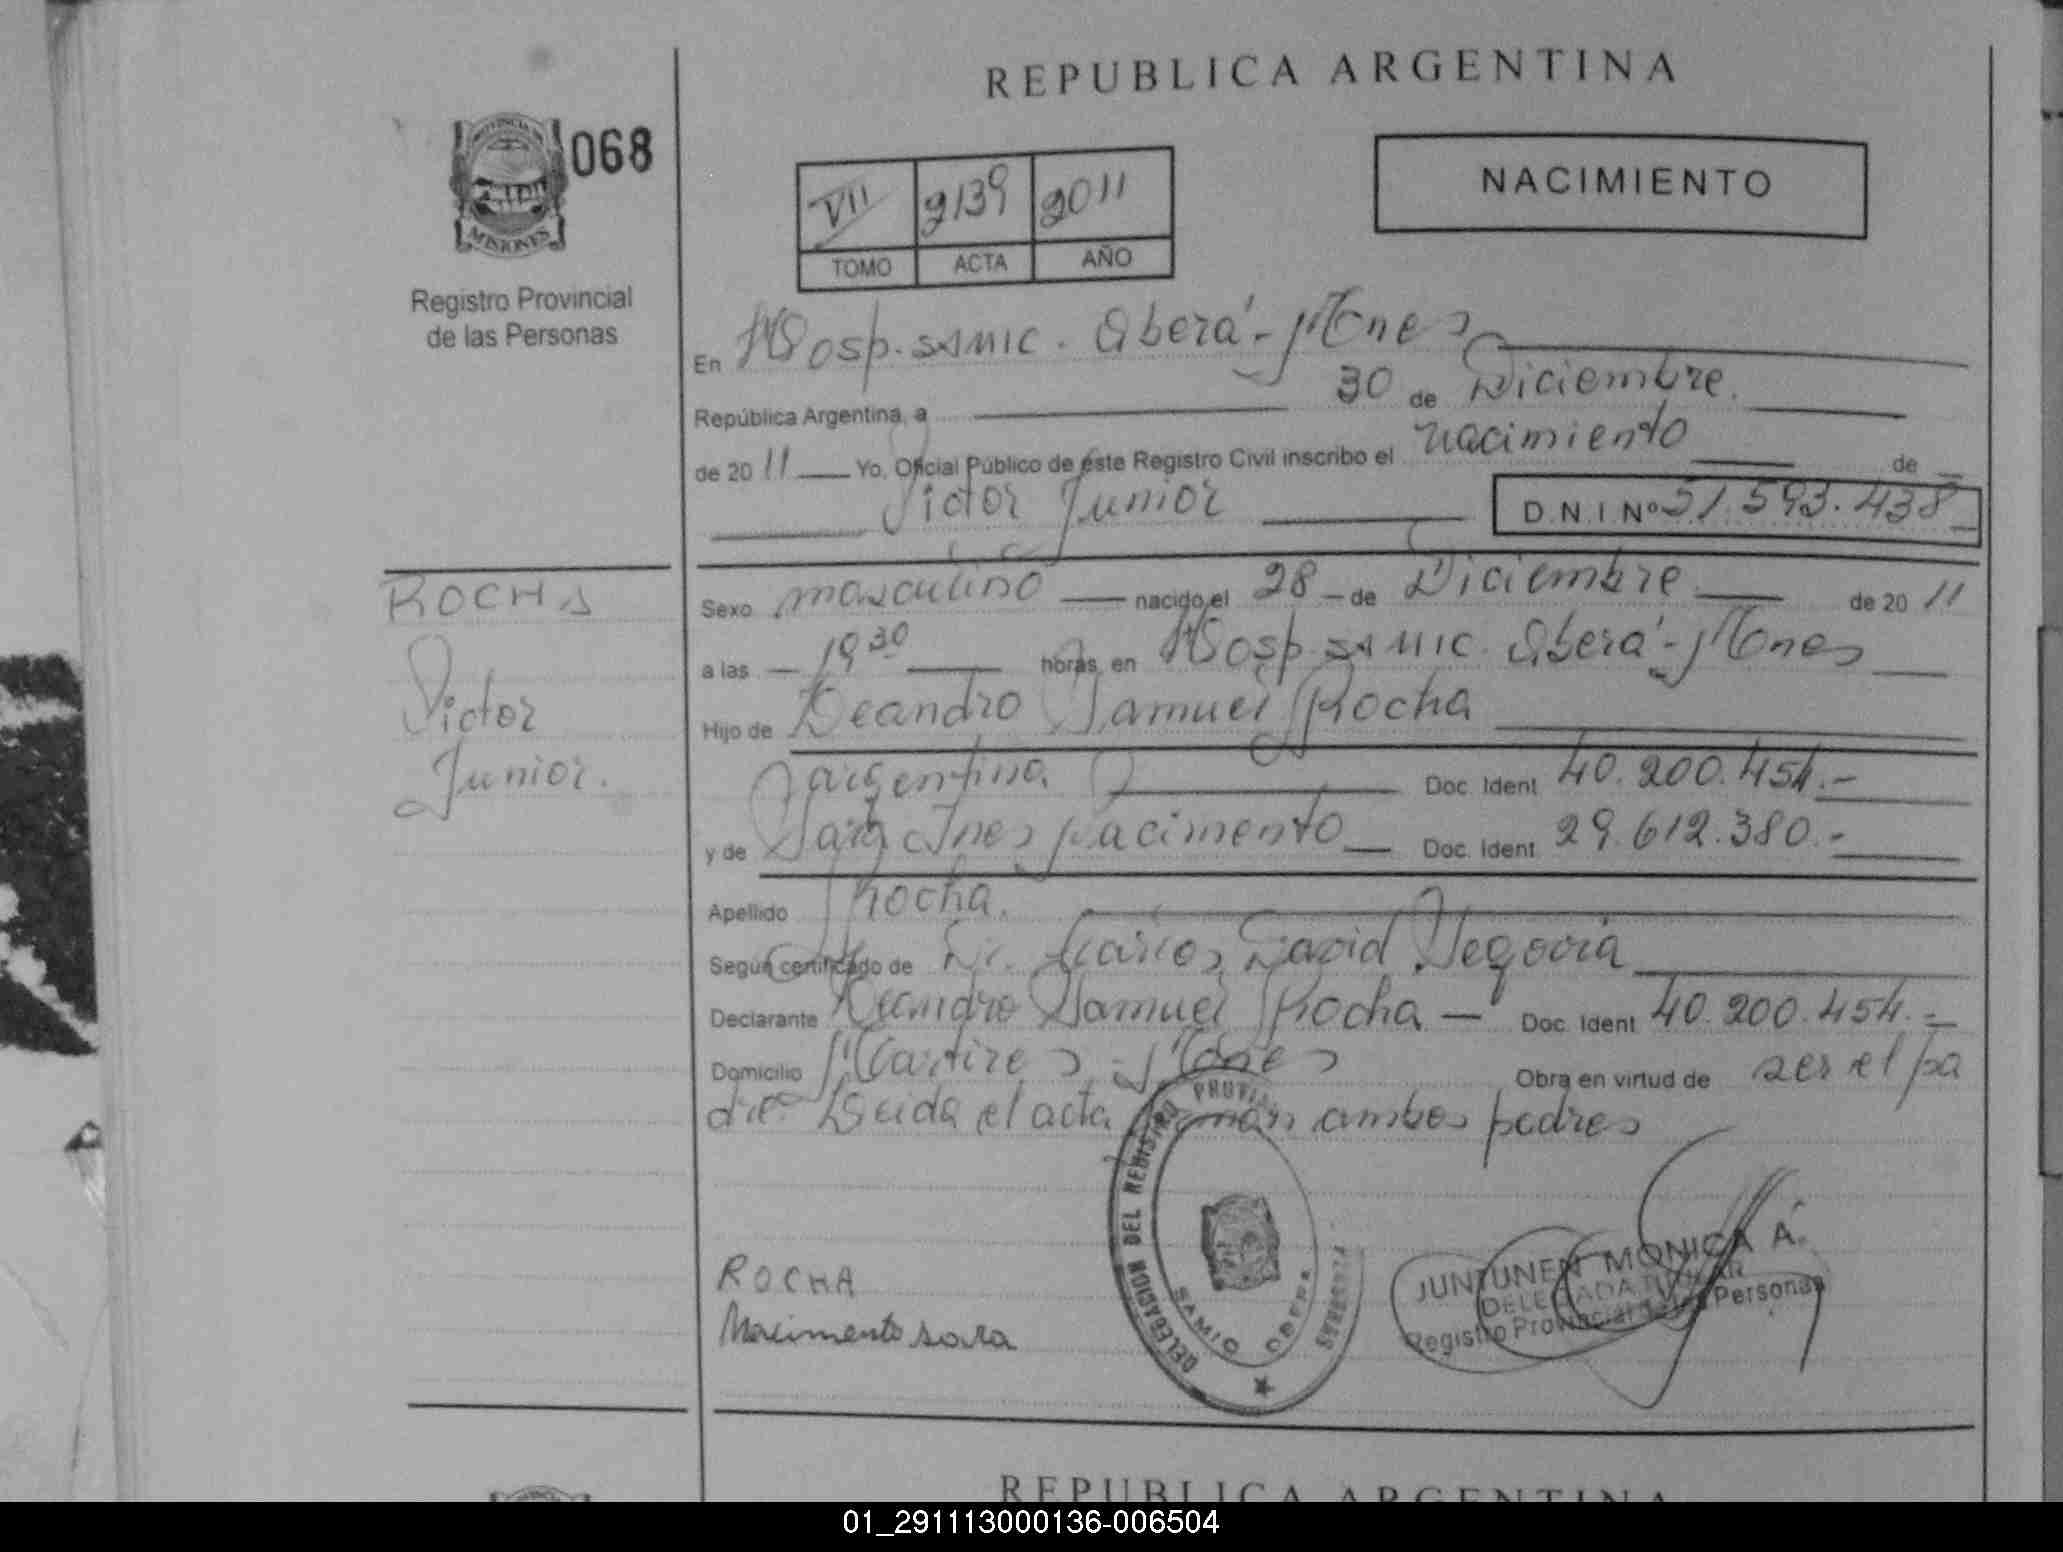 REPUBLICA ARGENTINA
PROVINCIA DE
MISIONES
068
Registro Provincial
de las Personas
VII 2139 2011
TOMO ACTA AÑO
NACIMIENTO
En Hosp. SAMIC. Oberá - Mnes
República Argentina, a 30 de Diciembre.
de 2011 Yo, Oficial Público de este Registro Civil inscribo el nacimiento de
Victor Junior D.N.I Nº 51.593.438
ROCHA
Victor
Junior.
Sexo masculino nacido el 28 de Diciembre de 2011
a las 19 30 horas, en Hosp. SAMIC. Oberá - Mnes
Hijo de Leandro Samuel Rocha
argentino. Doc. Ident 40.200.454.-
y de Sara Ines Nacimento Doc. Ident. 29.612.380.-
Apellido Rocha.
Según certificado de Dr. Marcos David Segovia
Declarante Leandro Samuel Rocha — Doc. Ident 40.200.454.-
Domicilio Martires - Mnes Obra en virtud de ser el pa
dre. Leida el acta firman ambos padres
ROCHA
Nacimento Sara
DELEGACION DEL REGISTRO
SAMIC OBERA
PERSONAS
JUNTUNEN MONICA A.
DELEGADA TITULAR
Registro Provincial de las Personas
REPUBLICA ARGENTINA
01_291113000136-006504